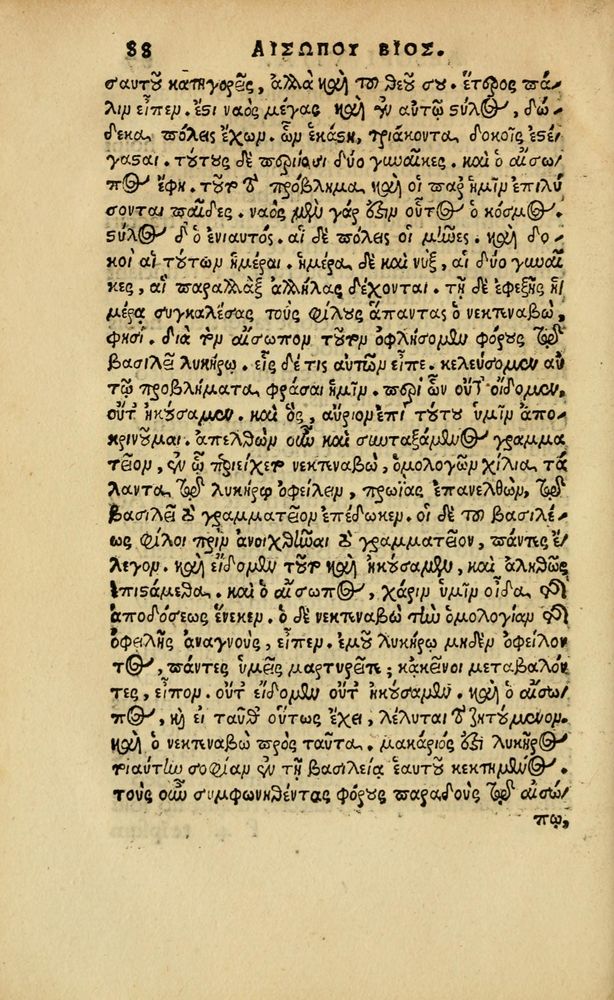 88 ΑΙΣΩΠΟΥ ΒΙΟΣ.
σαυτοῦ κατηγορεῖς, ἀλλὰ καὶ τοῦ θεοῦ σου. ἕτερος πά-
λιν εἶπεν. ἔστι ναὸς μέγας καὶ ἐν αὐτῷ στύλος, δώ-
δεκα πόλεις ἔχων. ὧν ἑκάστη, τριάκοντα δοκοῖς ἐστέ-
γασται. τούτους δὲ περιίασι δύο γυναῖκες. καὶ ὁ αἴσω-
πος ἔφη. τοῦτο τὸ πρόβλημα καὶ οἱ παρ' ἡμῖν ἐπιλύ
σονται παῖδες. ναὸς μὲν γάρ ἐστιν οὗτος ὁ κόσμος.
στύλος δὲ ὁ ἐνιαυτός. αἱ δὲ πόλεις οἱ μῆνες. καὶ δο-
κοὶ αἱ τούτων ἡμέραι. ἡμέρα δὲ καὶ νὺξ, αἱ δύο γυναῖ
κες, αἳ παραλλὰξ ἀλλήλας δέχονται. τῇ δὲ ἐφεξῆς ἡ-
μέρᾳ συγκαλέσας τοὺς φίλους ἅπαντας ὁ νεκτεναβὼ,
φησί. διὰ τὸν αἴσωπον τοῦτον ὀφλήσομεν φόρους τῷ
βασιλεῖ λυκήρῳ. εἷς δέ τις αὐτῶν εἶπε. κελεύσομεν αὐ
τῷ προβλήματα φράσαι ἡμῖν. περὶ ὧν οὔτ' οἴδομεν,
οὔτ' ἠκούσαμεν. καὶ ὃς, αὔριον ἐπὶ τούτου ὑμῖν ἀπο-
κρινοῦμαι. ἀπελθὼν οὖν καὶ συνταξάμενος γραμμα
τεῖον, ἐν ᾧ περιείχετο νεκτεναβὼ, ὁμολογῶν χίλια τά
λαντα τῷ λυκήρῳ ὀφείλειν, πρωΐας ἐπανελθὼν, τῷ
βασιλεῖ τὸ γραμματεῖον ἐπέδωκεν. οἱ δὲ τοῦ βασιλέ-
ως φίλοι πρὶν ἀνοιχθῆναι τὸ γραμματεῖον, πάντες ἔ-
λεγον. καὶ εἴδομεν τοῦτο καὶ ἠκούσαμεν, καὶ ἀληθῶς
ἐπιστάμεθα. καὶ ὁ αἴσωπος, χάριν ὑμῖν οἶδα τῆς
ἀποδόσεως ἕνεκεν. ὁ δὲ νεκτεναβὼ τὴν ὁμολογίαν τῆς
ὀφειλῆς ἀναγνοὺς, εἶπεν. ἐμοῦ λυκήρῳ μηδὲν ὀφείλον
τος, πάντες ὑμεῖς μαρτυρεῖτε; κἀκεῖνοι μεταβαλόν-
τες, εἶπον. οὔτ' εἴδομεν οὔτ' ἠκούσαμεν. καὶ ὁ αἴσω
πος, κἢ εἰ ταῦθ' οὕτως ἔχει, λέλυται τὸ ζητούμενον.
καὶ ὁ νεκτεναβὼ πρὸς ταῦτα. μακάριός ἐστι λυκῆρος
τοιαύτην σοφίαν ἐν τῇ βασιλείᾳ ἑαυτοῦ κεκτημένος.
τοὺς οὖν συμφωνηθέντας φόρους παραδοὺς τῷ αἰσώ-
πῳ,